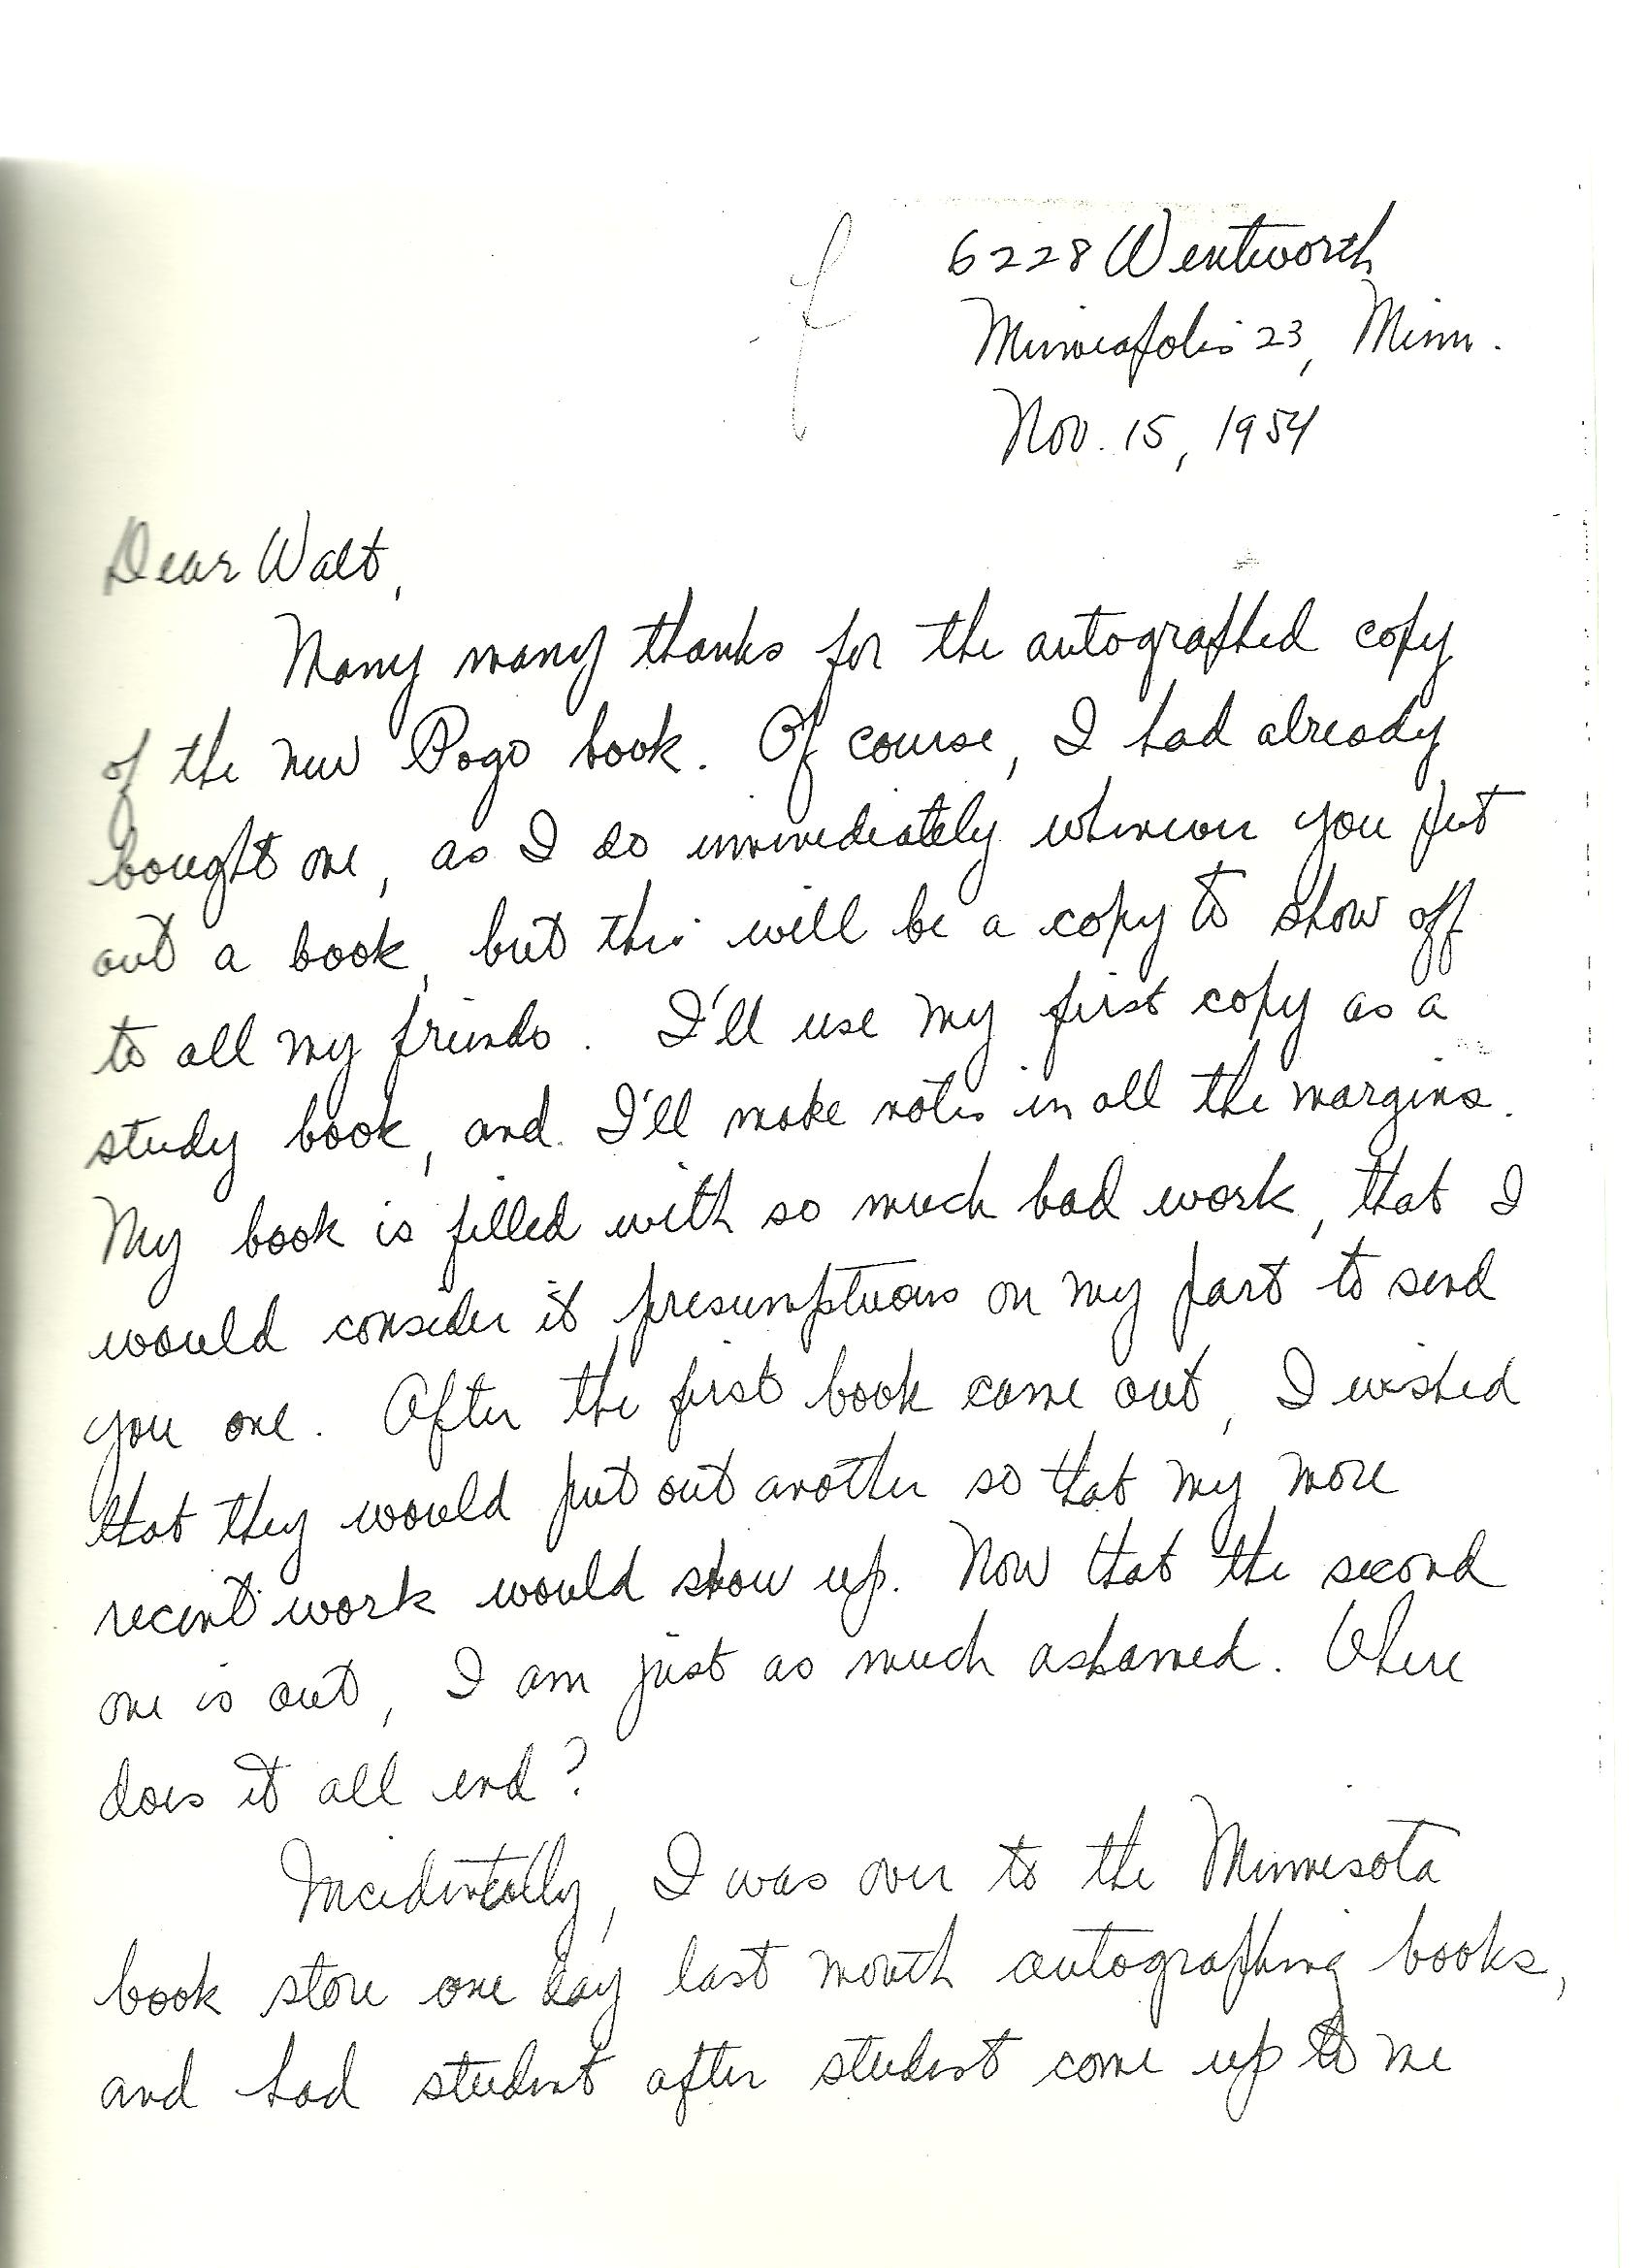 6228 Wentworth
Minneapolis 23, Minn.
Nov. 15, 1954
Dear Walt,
Many many thanks for the autographed copy
of the new Pogo book. Of course, I had already
bought one, as I do immediately whenever you put
out a book, but this will be a copy to show off
to all my friends. I'll use my first copy as a
study book, and I'll make notes in all the margins.
My book is filled with so much bad work, that I
would consider it presumptuous on my part to send
you one. After the first book came out, I wished
that they would put out another so that my more
recent work would show up. Now that the second
one is out, I am just as much ashamed. Where
does it all end?
Incidentally, I was over to the Minnesota
book store one day last month autographing books,
and had student after student come up to me